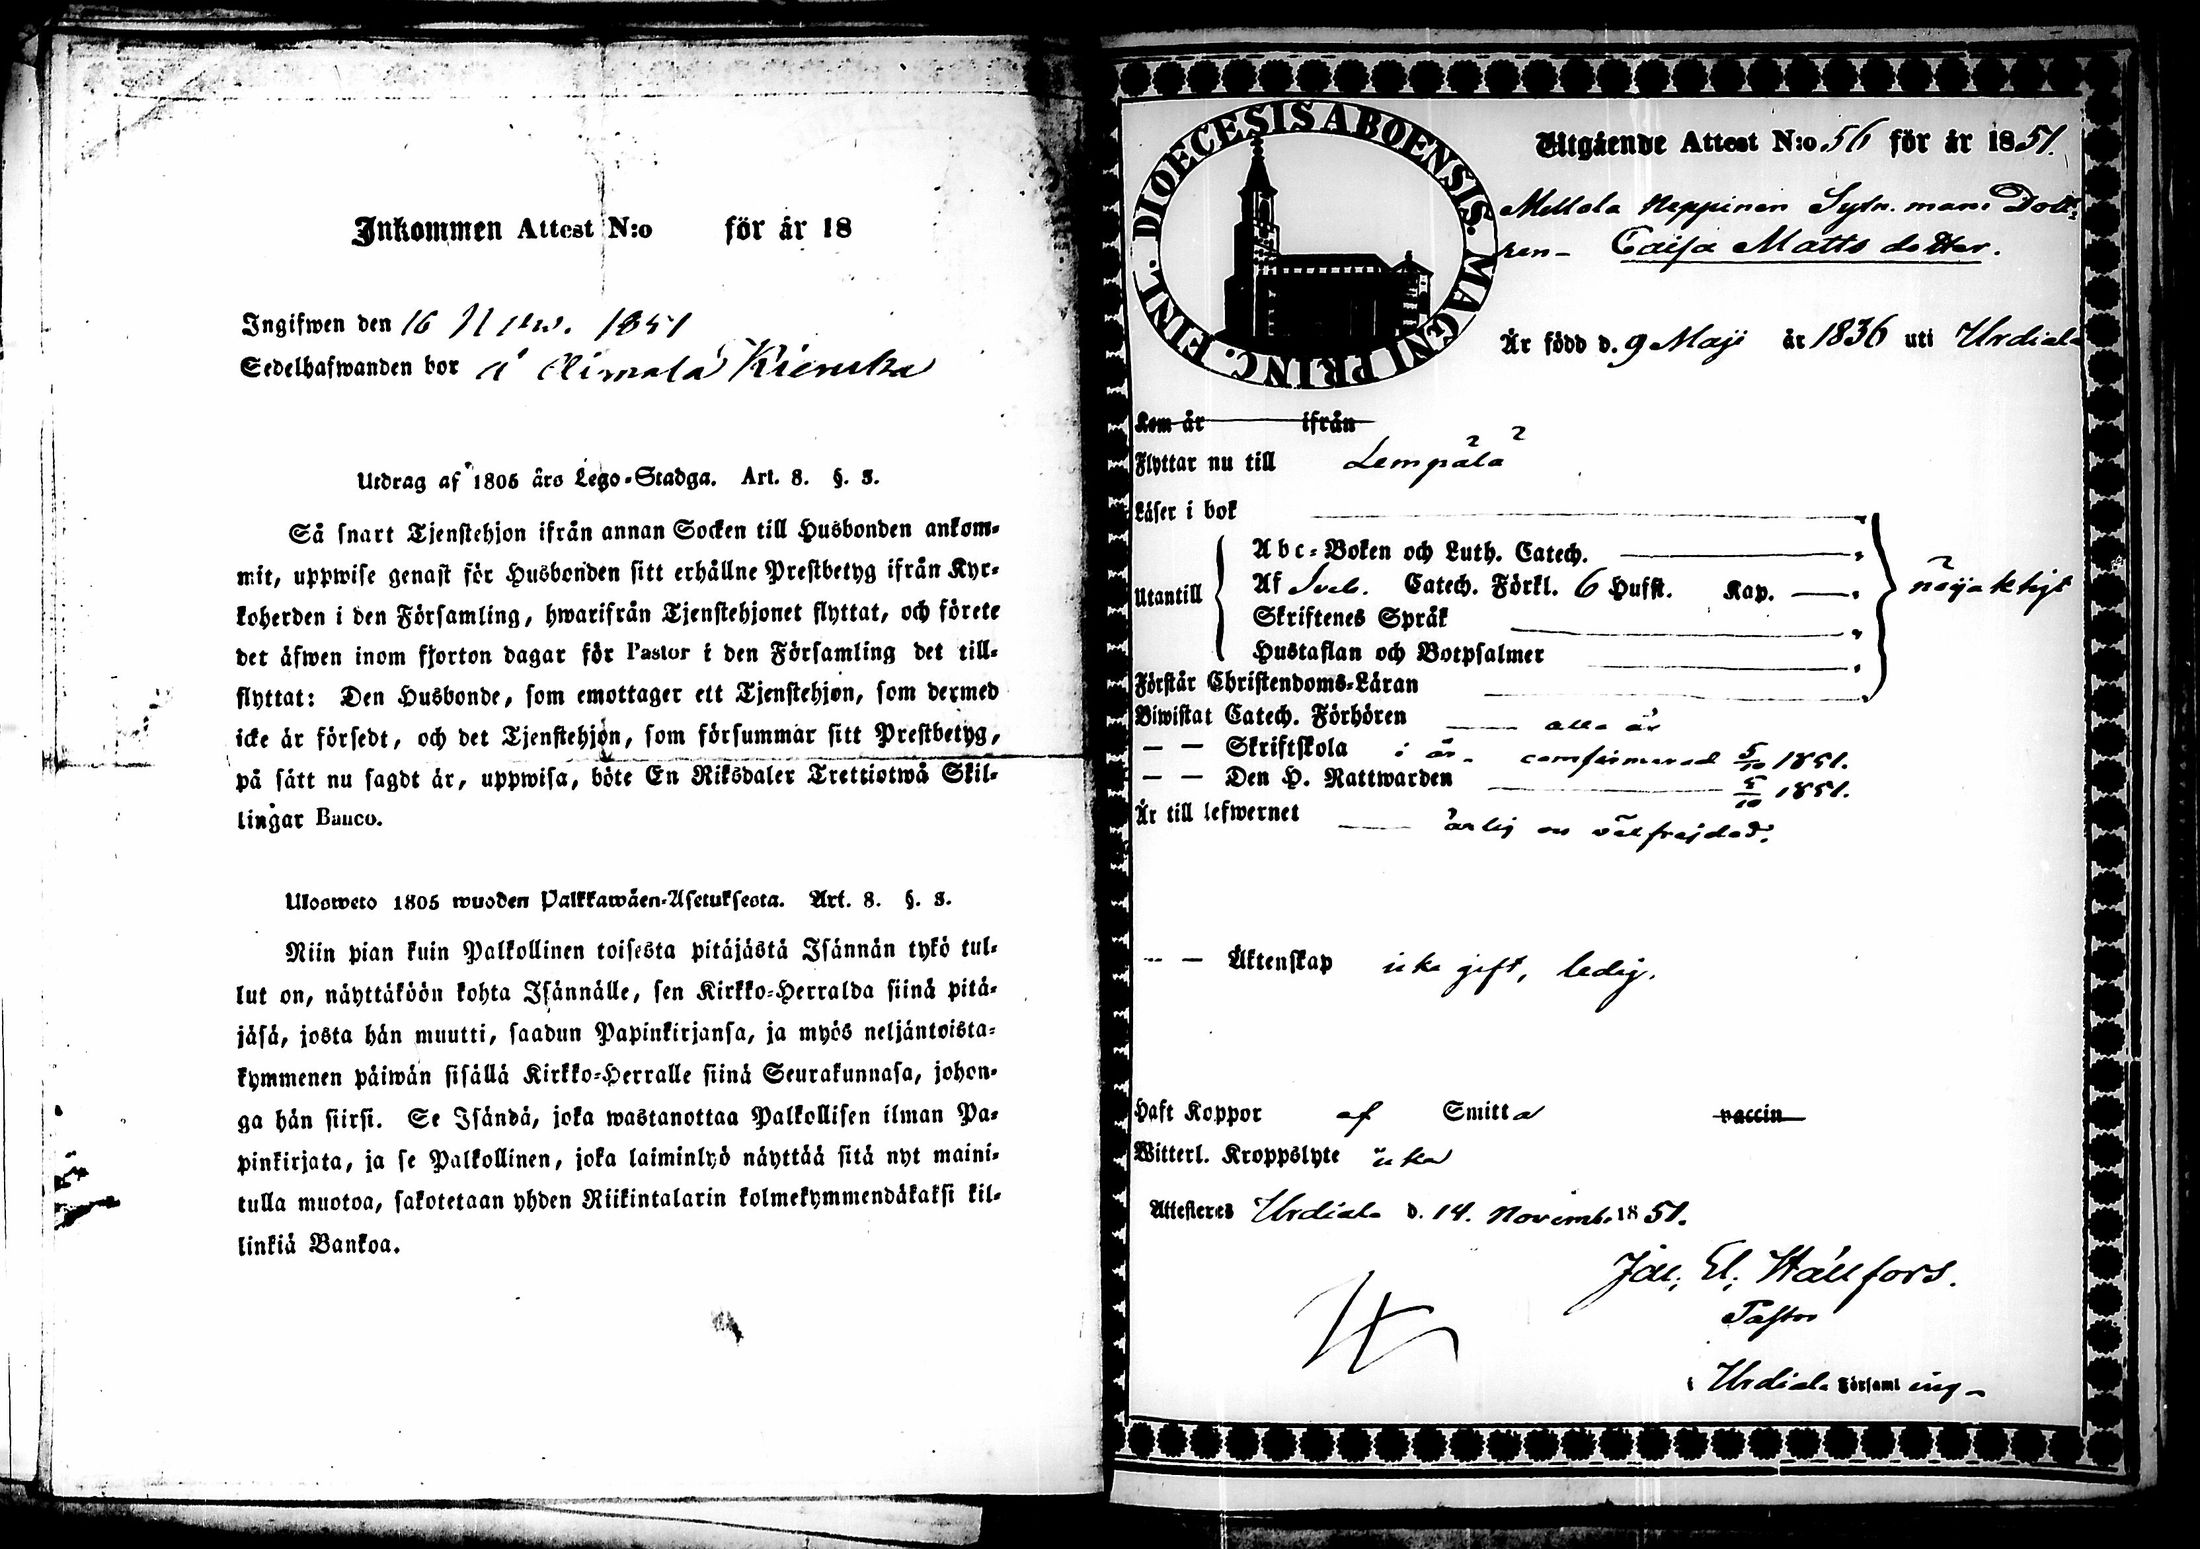 Inkommen Attest N:o för år 18
Ingifwen den 16 Nov. 1851
Sedelhafwanden bor å
Utdrag af 1805 års Lego-Stadga. Art. 8. §. 3.
Så snart Tjenstehjon ifrån annan Socken till Husbonden ankom-
mit, uppwise genast för Husbonden sitt erhållne Prestbetyg ifrån Kyr-
koherden i den Församling, hwarifrån Tjenstehjonet flyttat, och förete
det äfwen inom fjorton dagar för Pastor i den Församling det till-
flyttat: Den Husbonde, som emottager ett Tjenstehjon, som dermed
icke är försedt, och det Tjenstehjon, som försummar sitt Prestbetyg,
på sätt nu sagdt är, uppwisa, böte En Riksdaler Trettiotwå Skil-
lingar Banco.
Ulosweto 1805 wuoden Palkkawäen-Asetuksesta. Art. 8. §. 3.
Niin pian kuin Palkollinen toisesta pitäjästä Isännän tykö tul-
lut on, näyttäköön kohta Isännälle, sen Kirkko-Herralda siinä pitä-
jäsä, josta hän muutti, saadun Papinkirjansa, ja myös neljäntoista-
kymmenen päiwän sisällä Kirkko-Herralle siinä Seurakunnasa, johon-
ga hän siirsi. Se Isändä, joka wastanottaa Palkollisen ilman Pa-
pinkirjata, ja se Palkollinen, joka laiminlyö näyttää sitä nyt maini-
tulla muotoa, sakotetaan yhden Riikintalarin kolmekymmendäkaksi kil-
linkiä Bankoa.
DIOECESIS ABOENSIS. MAGNI PRINC. FINL.
Utgående Attest N:o 56 för år 1851.
Mellola Neppinen Sytn. mans Dott-
ren - Caisa Matts dotter.
Är född d. 9 Maji år 1836 uti Urdiala
Kom år ifrån
Flyttar nu till Lempälä
Läser i bok
Abc-Boken och Luth. Catech.
Utantill Af Sveb. Catech. Förkl. 6 Hufst. Kap. nöjaktigt
Skriftenes Språk
Hustaflan och Botpsalmer
Förstår Christendoms-Läran
Biwistat Catech. Förhören alla år
— — Skriftskola i år. confirmerad 5/10 1851.
— — Den H. Nattwarden 5/10 1851.
Är till lefwernet ärlig och välfrejdad.
— — Äktenskap icke gift, ledig.
Haft Koppor af Smitta vaccin
Witterl. Kroppslyte icke
Attesteres Urdiala d. 14. Novemb. 1851.
Joh. El. Hällfors.
Pastor
i Urdiala Församling -